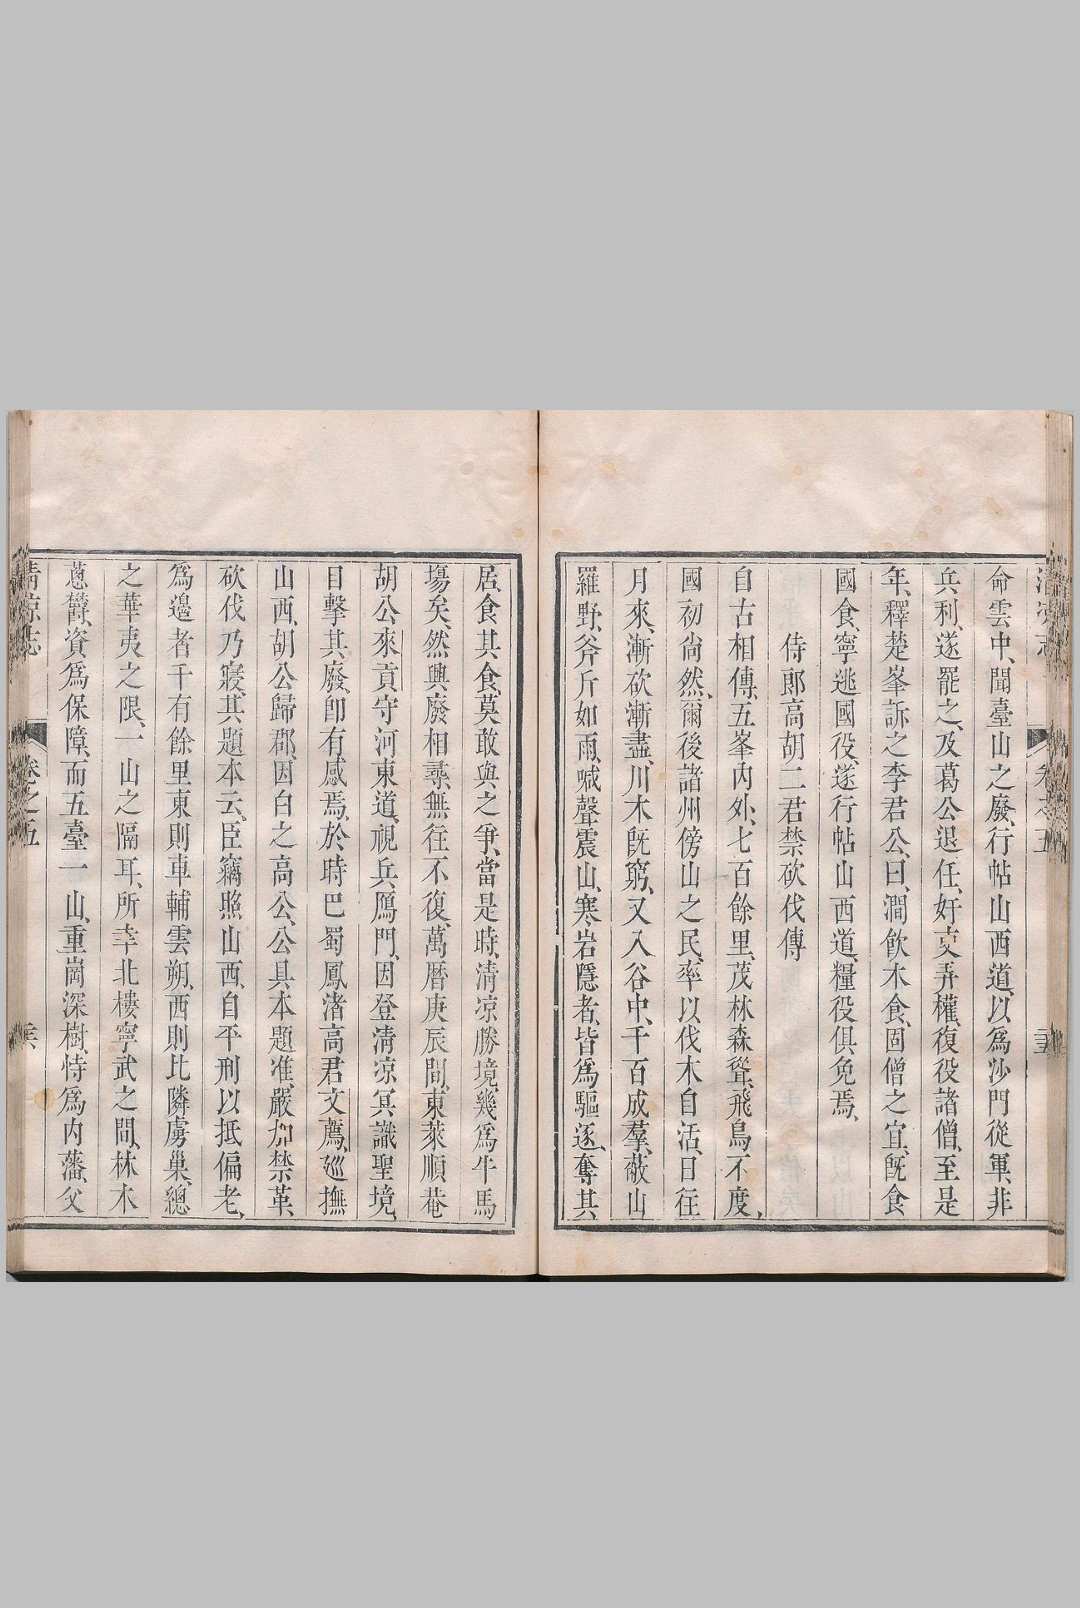 命雲中、聞臺山之廢、行帖山西道、以爲沙門從軍、非
兵利、遂罷之、及葛公退任、奸吏弄權、復役諸僧、至是
年、釋楚峯訴之李君公、曰、澗飲木食、固僧之宜、既食
國食、寧逃國役、遂行帖山西道、糧役俱免焉、
侍郎高胡二君禁砍伐傳
自古相傳、五峯内外、七百餘里、茂林森聳、飛鳥不度、
國初尚然、爾後諸州傍山之民、率以伐木自活、日往
月來、漸砍漸盡、川木既窮、又入谷中、千百成羣、蔽山
羅野、斧斤如雨、喊聲震山、寒岩隱者、皆爲驅逐、奪其
居、食其食、莫敢與之爭、當是時、清凉勝境、幾爲牛馬
塲矣、然興廢相尋、無往不復、萬曆庚辰間、東萊順菴
胡公來貢守河東道、視兵鴈門、因登清凉、冥識聖境、
目擊其廢、卽有感焉、於時巴蜀鳳渚高君文薦、巡撫
山西、胡公歸郡、因白之高公、公具本題准、嚴加禁革、
砍伐乃寢、其題本云、臣竊照山西、自平刑以抵偏老、
爲邊者千有餘里、東則車輔雲朔、西則比隣虜巢、總
之華夷之限、一山之隔耳、所幸北樓寧武之間、林木
蔥欝、資爲保障、而五臺一山、重崗深樹、恃爲内藩、父
清凉志
卷之五